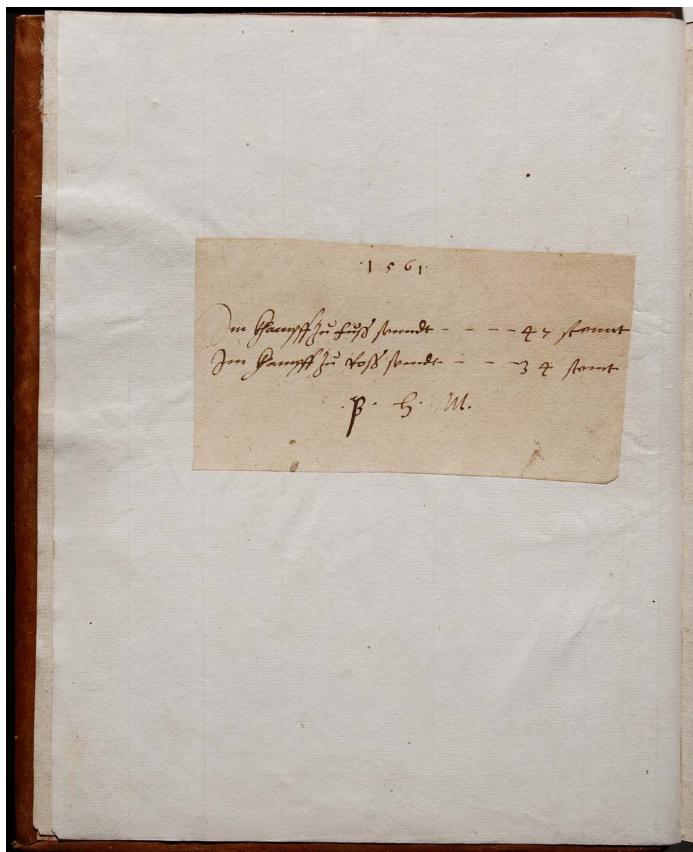 · 1 5 6 1 ·
Im Kampff zu fuß seindt - - - - 47 stuckt
Im Kampff zu Roß seindt - - - 34 stuckt
· P · H · M ·